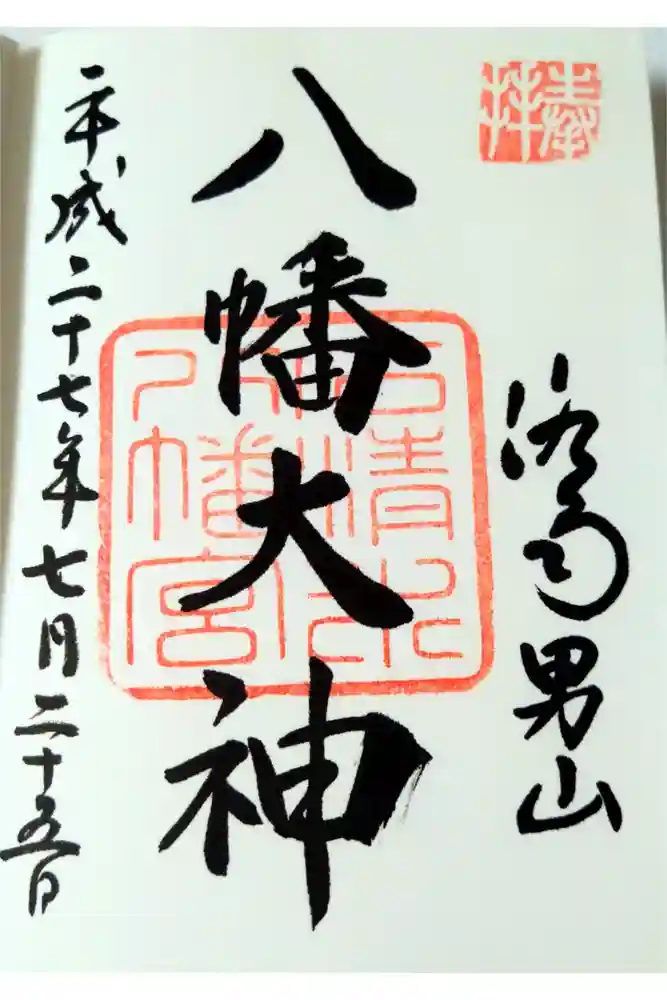 奉拝
洛南男山
八幡大神
石清水八幡宮
平成二十七年七月二十五日